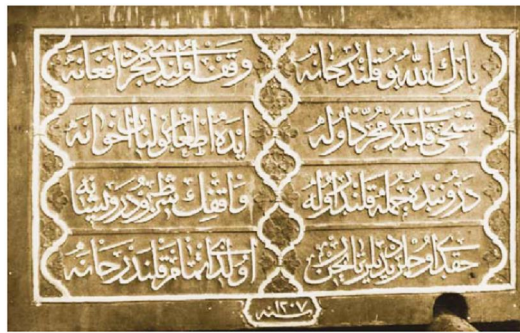 بارك الله بو قلندرخانه وقف اولندی مجرد افغانه
شیخی قلندری مجرد اوله ایده اطعام بولنان اخوانه
درونده جمله قلندر اوله واقفك شرطی بودر درویشانه
اوچلر دیدیلر تاریخن اولدی اتمام قلندرخانه
سنه ١٢٠٧